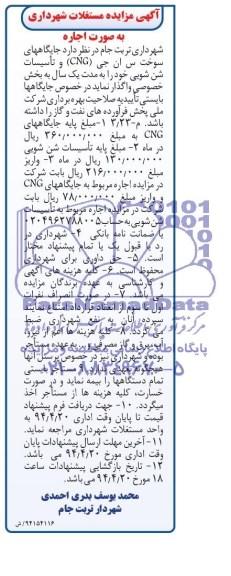 آگهی مزایده مستغلات شهرداری
به صورت اجاره
شهرداری تربت جام در نظر دارد جایگاههای
سوخت سی ان جی (CNG) و تأسیسات
شن شویی خود را به مدت یک سال به بخش
خصوصی واگذار نماید در خصوص جایگاهها
بایستی تأییدیه صلاحیت بهره برداری شرکت
ملی پخش فرآورده های نفت و گاز را داشته
باشد. ۱-مبلغ پایه جایگاههای
CNG به مبلغ ۳۶۰/۰۰۰/۰۰۰ ریال
در ماه ۲- مبلغ پایه تأسیسات شن شویی
۱۳۰/۰۰۰/۰۰۰ ریال در ماه ۳- واریز
مبلغ ۲۱۶/۰۰۰/۰۰۰ ریال بابت شرکت
در مزایده اجاره مربوط به جایگاههای CNG
و واریز مبلغ ۷۸/۰۰۰/۰۰۰ ریال بابت
شرکت در مزایده اجاره مربوط به تأسیسات
شن شویی به حساب
یا ضمانت نامه بانکی ۴- شهرداری در
رد یا قبول یک یا تمام پیشنهاد مختار
است. ۵- حق داوری برای شهرداری
محفوظ است. ۶- کلیه هزینه های آگهی
و کارشناسی به عهده برندگان مزایده
می باشد. ۷- در صورتی
سپرده آنان به نفع شهرداری ضبط
۸- کلیه هزینه ها اعم از
به عهده مستأجر
بوده و شهرداری نیز در خصوص پرسنل آنها
تمام دستگاهها را بیمه نماید و در صورت
خسارت، کلیه هزینه ها از مستأجر اخذ
میگردد. ۱۰- جهت دریافت فرم پیشنهاد
قیمت تا پایان وقت اداری ۹۴/۴/۲۰ به
واحد مستغلات شهرداری مراجعه نماید.
۱۱- آخرین مهلت ارسال پیشنهادات پایان
وقت اداری مورخ ۹۴/۴/۲۰ می باشد.
۱۲- تاریخ بازگشایی پیشنهادات ساعت
۱۸ مورخ ۹۴/۴/۲۰ می باشد.
محمد یوسف بدری احمدی
شهردار تربت جام
۹۴۱۵۴۱۱۶/ش